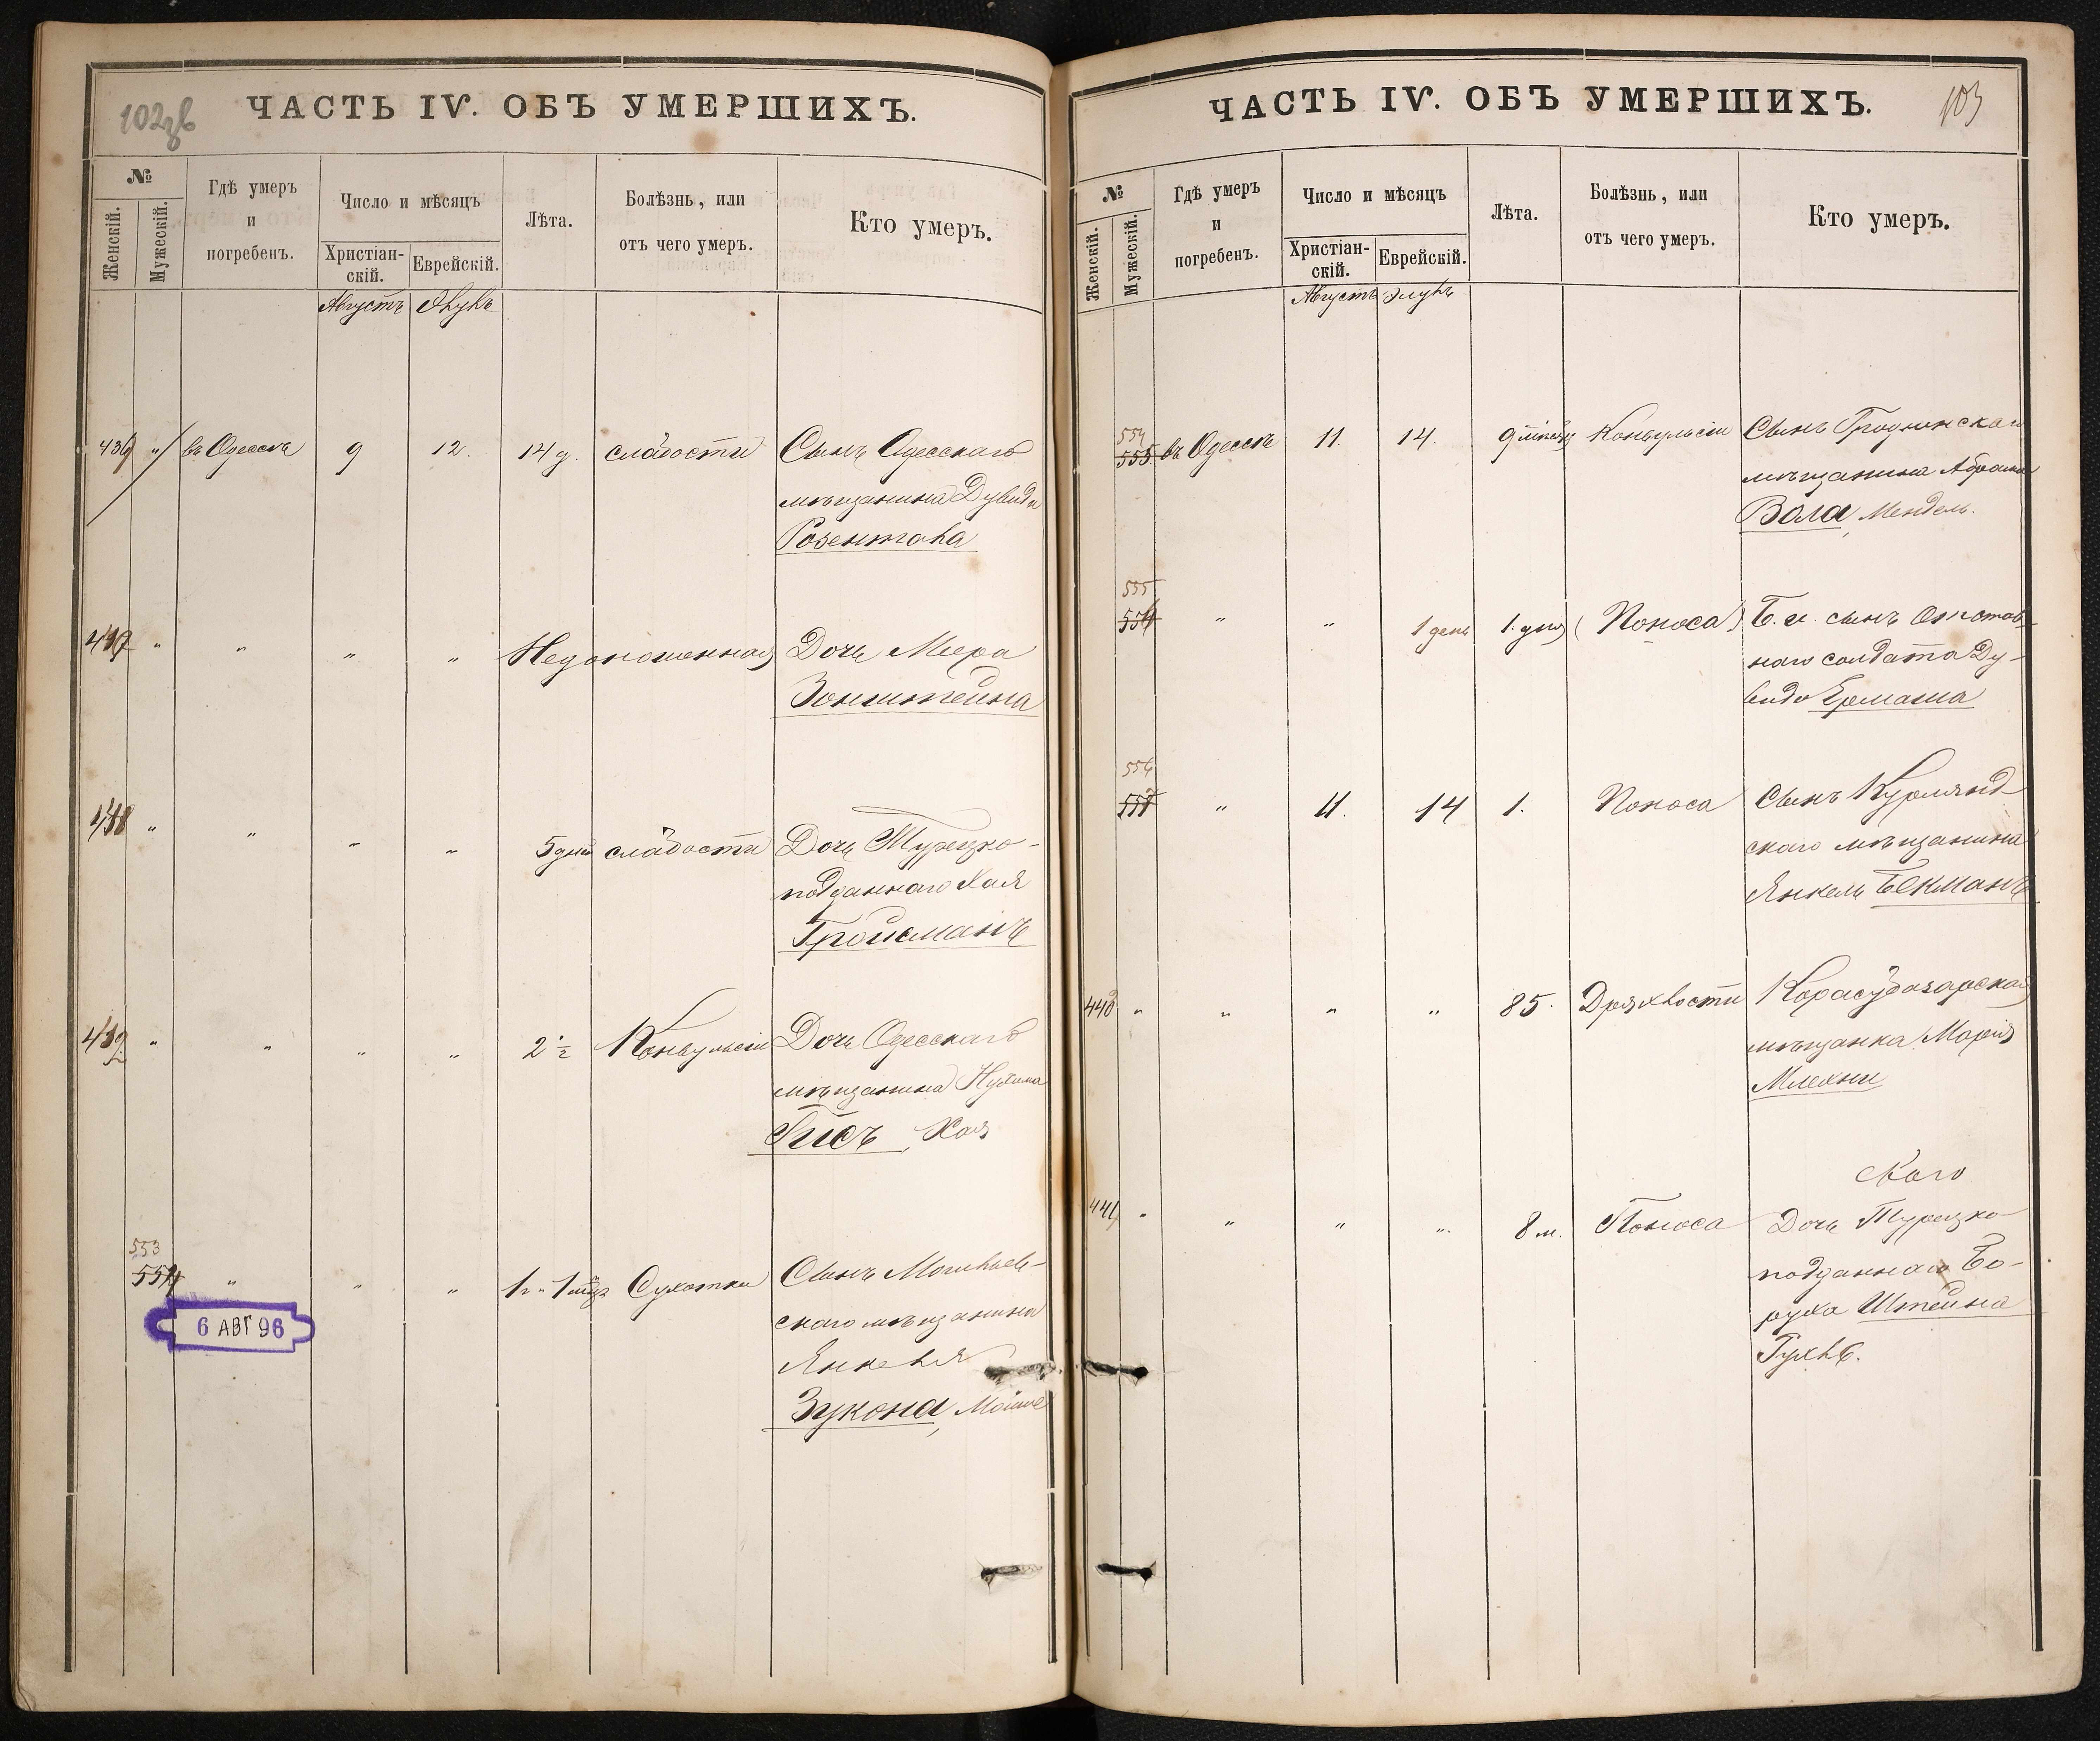 102 об
ЧАСТЬ IV. ОБЪ УМЕРШИХЪ.
№
Женскій.
Мужескій.
Гдѣ умеръ
и
погребенъ.
Число и мѣсяцъ
Христіан-
скій.
Еврейскій.
Лѣта.
Болѣзнь, или
отъ чего умеръ.
Кто умеръ.
Августъ Элулъ
436 " въ Одессѣ 9 12. 14 д. слабости Сынъ Одесскаго
мѣщанина Дувида
Розенталя
437 " " " " Недоношенная Дочь Меера
Зонштейна
438 " " " " 5 дней слабости Дочь Турецко-
подданнаго Хая
Гройсманъ
439 " " " " 2 ½ Конвульсіи Дочь Одесскаго
мѣщанина Нухима
Гисъ, Хая
553
554 " " " 1 г. 1 мѣс. Сухотки Сынъ Могилев-
скаго мѣщанина
Янкеля
Зукона, Мойше
6 АВГ 96
103
ЧАСТЬ IV. ОБЪ УМЕРШИХЪ.
№
Женскій.
Мужескій.
Гдѣ умеръ
и
погребенъ.
Число и мѣсяцъ
Христіан-
скій.
Еврейскій.
Лѣта.
Болѣзнь, или
отъ чего умеръ.
Кто умеръ.
Августъ Элулъ
554
555 въ Одессѣ 11. 14. 9 мѣсяц Конвульсіи Сынъ Гродненскаго
мѣщанина Абрама
Вола, Мендель.
555
556 " " 1 день 1. дня Поноса Б. и. сынъ отстав-
наго солдата Ду-
вида Ермаша
556
557 " 11. 14 1. Поноса Сынъ Курлянд-
скаго мѣщанина
Янкель Бекманъ
440 " " " " 85. Дряхлости Карасубазарская
мѣщанка Марія
Млехни
скаго
441 " " " " 8 м. Поноса Дочь Турецко
подданнаго Бо-
руха Штейна
Рухль.